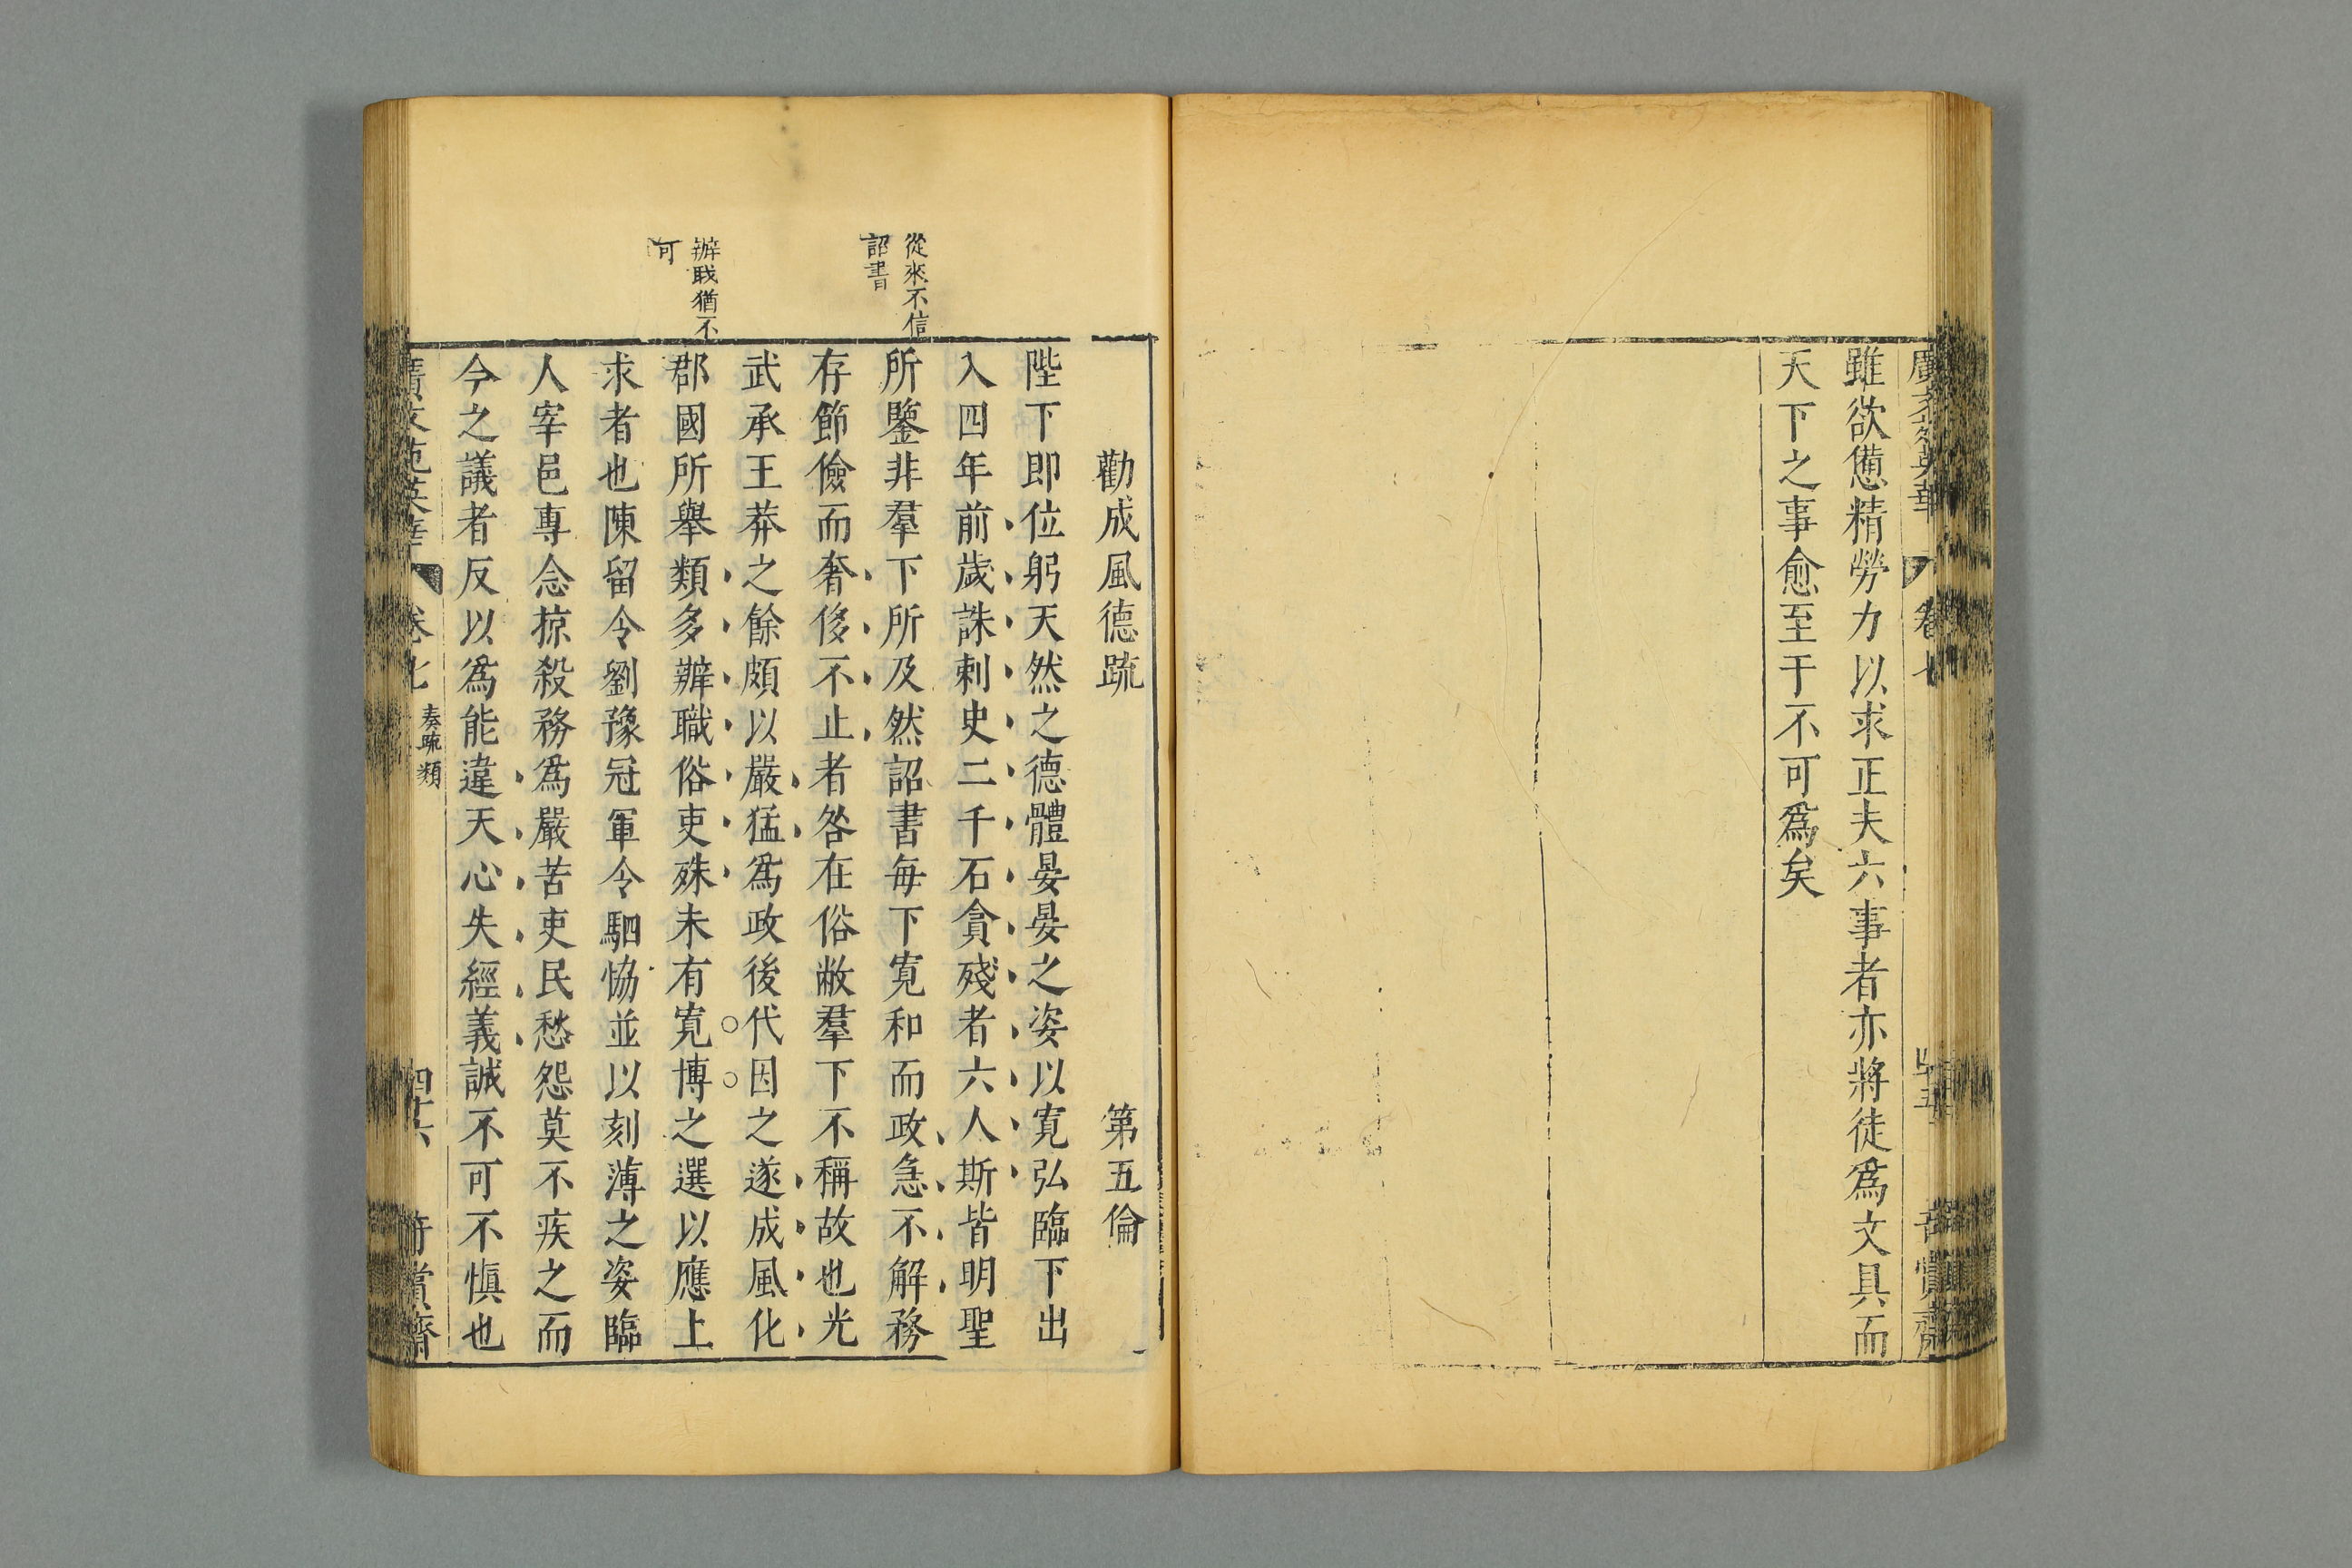 雖欲憊精勞力以求正夫六事者亦將徒爲文具而
天下之事愈至于不可爲矣
勸成風德疏 第五倫
陛下即位躬天然之德體晏晏之姿以寛弘臨下出
入四年前歲誅刺史二千石貪殘者六人斯皆明聖
所鑒非羣下所及然詔書每下寛和而政急不解務
存節儉而奢侈不止者咎在俗敝羣下不稱故也光
武承王莽之餘頗以嚴猛爲政後代因之遂成風化
郡國所舉類多辦職俗吏殊未有寛博之選以應上
求者也陳留令劉豫冠軍令駟恊並以刻薄之姿臨
人宰邑專念掠殺務爲嚴苦吏民愁怨莫不疾之而
今之議者反以爲能違天心失經義誠不可不慎也
從來不信
詔書
辦職猶不
可
卷七 奏疏類 四十六